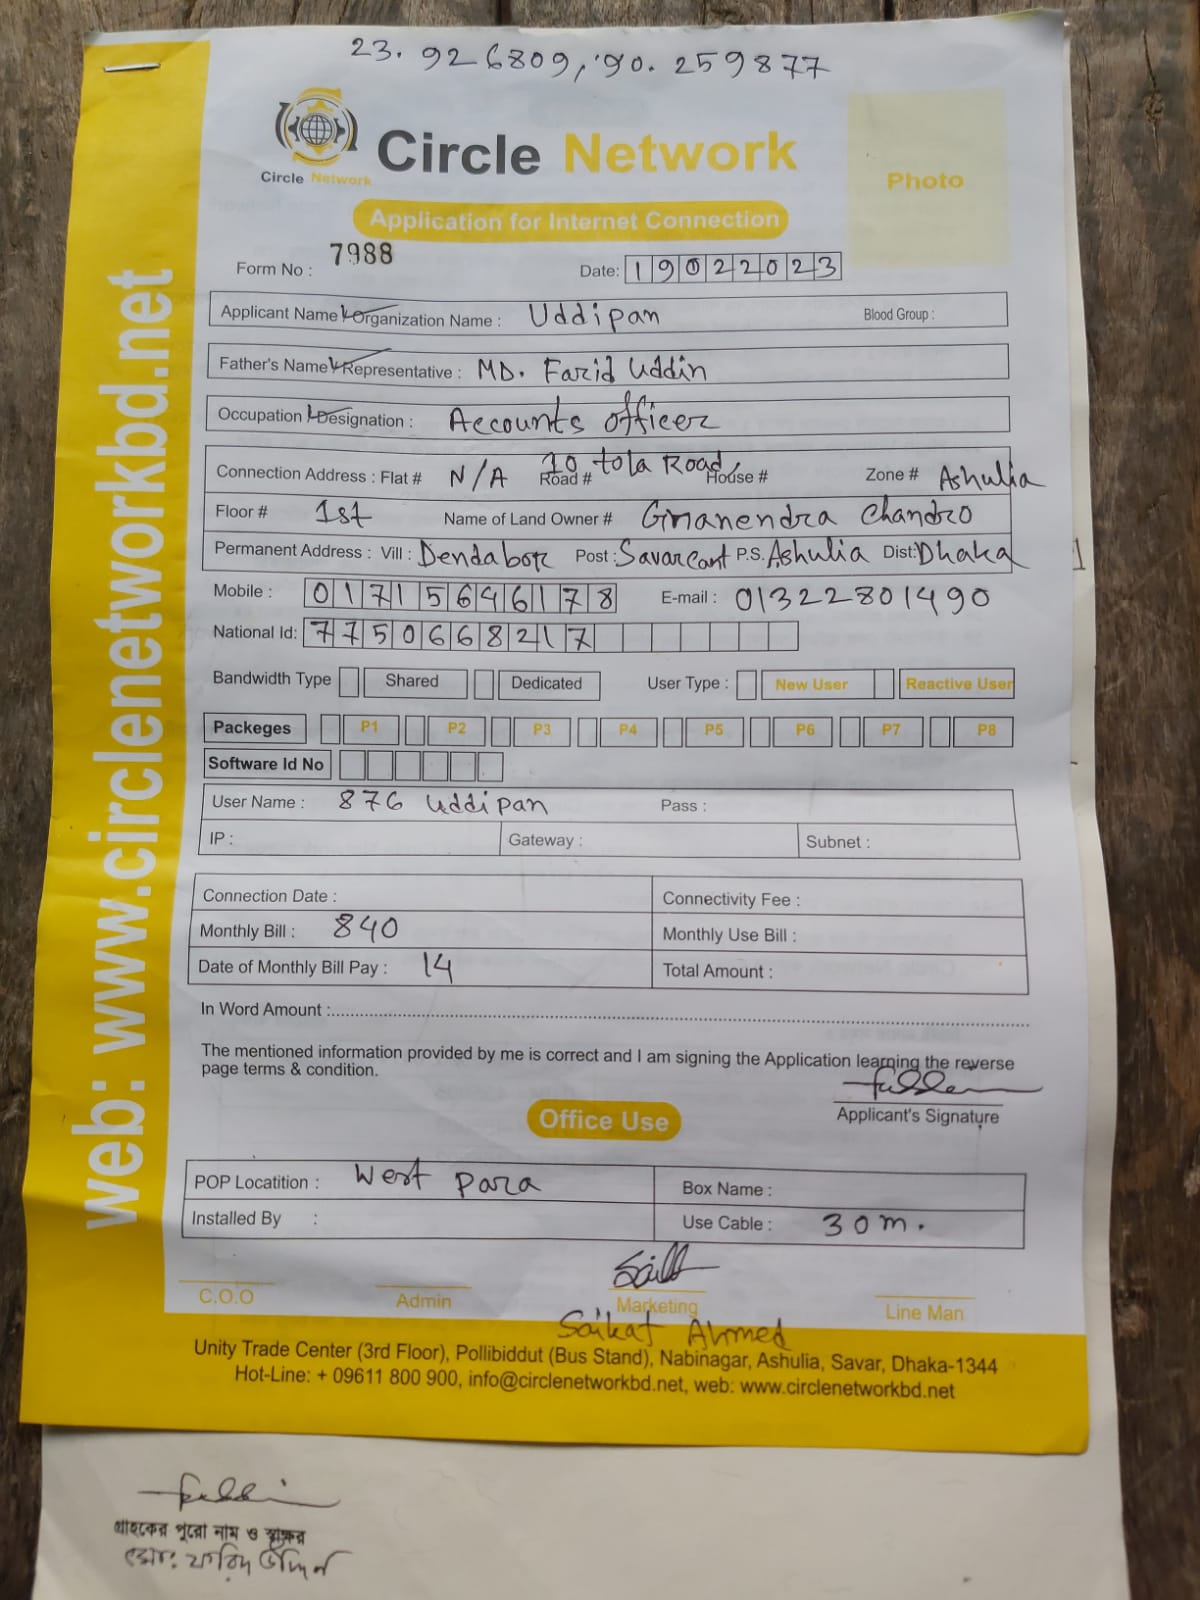 23.926809, 90.259877
Circle Network
Circle Network
Photo
Application for Internet Connection
Form No : 7988 Date: 19022023
Applicant Name / Organization Name : Uddipan Blood Group :
Father's Name / Representative : MD. Farid Uddin
Occupation / Designation : Accounts officer
Connection Address : Flat # N/A Road # 10 tola Road, House # Zone # Ashulia
Floor # 1st Name of Land Owner # Gnanendra Chandro
Permanent Address : Vill : Dendabor Post : Savar Cant P.S. Ashulia Dist: Dhaka
Mobile : 01715646178 E-mail : 01322801490
National Id: 7750668217
Bandwidth Type Shared Dedicated User Type : New User Reactive User
Packeges P1 P2 P3 P4 P5 P6 P7 P8
Software Id No
User Name : 876 Uddipan Pass :
IP : Gateway : Subnet :
Connection Date : Connectivity Fee :
Monthly Bill : 840 Monthly Use Bill :
Date of Monthly Bill Pay : 14 Total Amount :
In Word Amount :
The mentioned information provided by me is correct and I am signing the Application learning the reverse
page terms & condition.
Applicant's Signature
Office Use
POP Locatition : West para Box Name :
Installed By : Use Cable : 30m.
C.O.O Admin Marketing Line Man
Saikat Ahmed
Unity Trade Center (3rd Floor), Pollibiddut (Bus Stand), Nabinagar, Ashulia, Savar, Dhaka-1344
Hot-Line: + 09611 800 900, info@circlenetworkbd.net, web: www.circlenetworkbd.net
web: www.circlenetworkbd.net
গ্রাহকের পুরো নাম ও স্বাক্ষর
মোঃ ফরিদ উদ্দিন